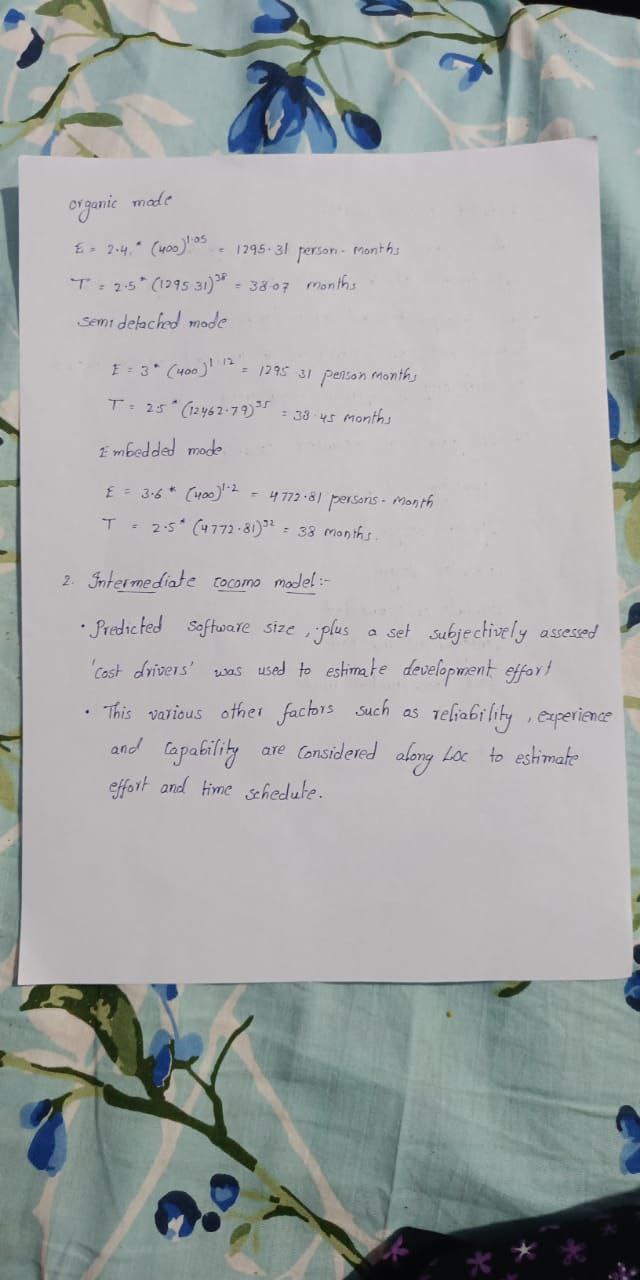 organic mode
E = 2.4 * (400)^1.05 = 1295.31 person-months
T = 2.5 * (1295.31)^38 = 38.07 months
Semi detached mode
E = 3 * (400)^1.12 = 1295 31 person months
T = 25 * (12462.79)^35 = 38.45 months
Embedded mode
E = 3.6 * (400)^1.2 = 4772.81 persons-month
T = 2.5 * (4772.81)^32 = 38 months.
2. Intermediate cocomo model:-
• Predicted software size, plus a set subjectively assessed
'cost drivers' was used to estimate development effort
• This various other factors such as reliability, experience
and capability are considered along LOC to estimate
effort and time schedule.